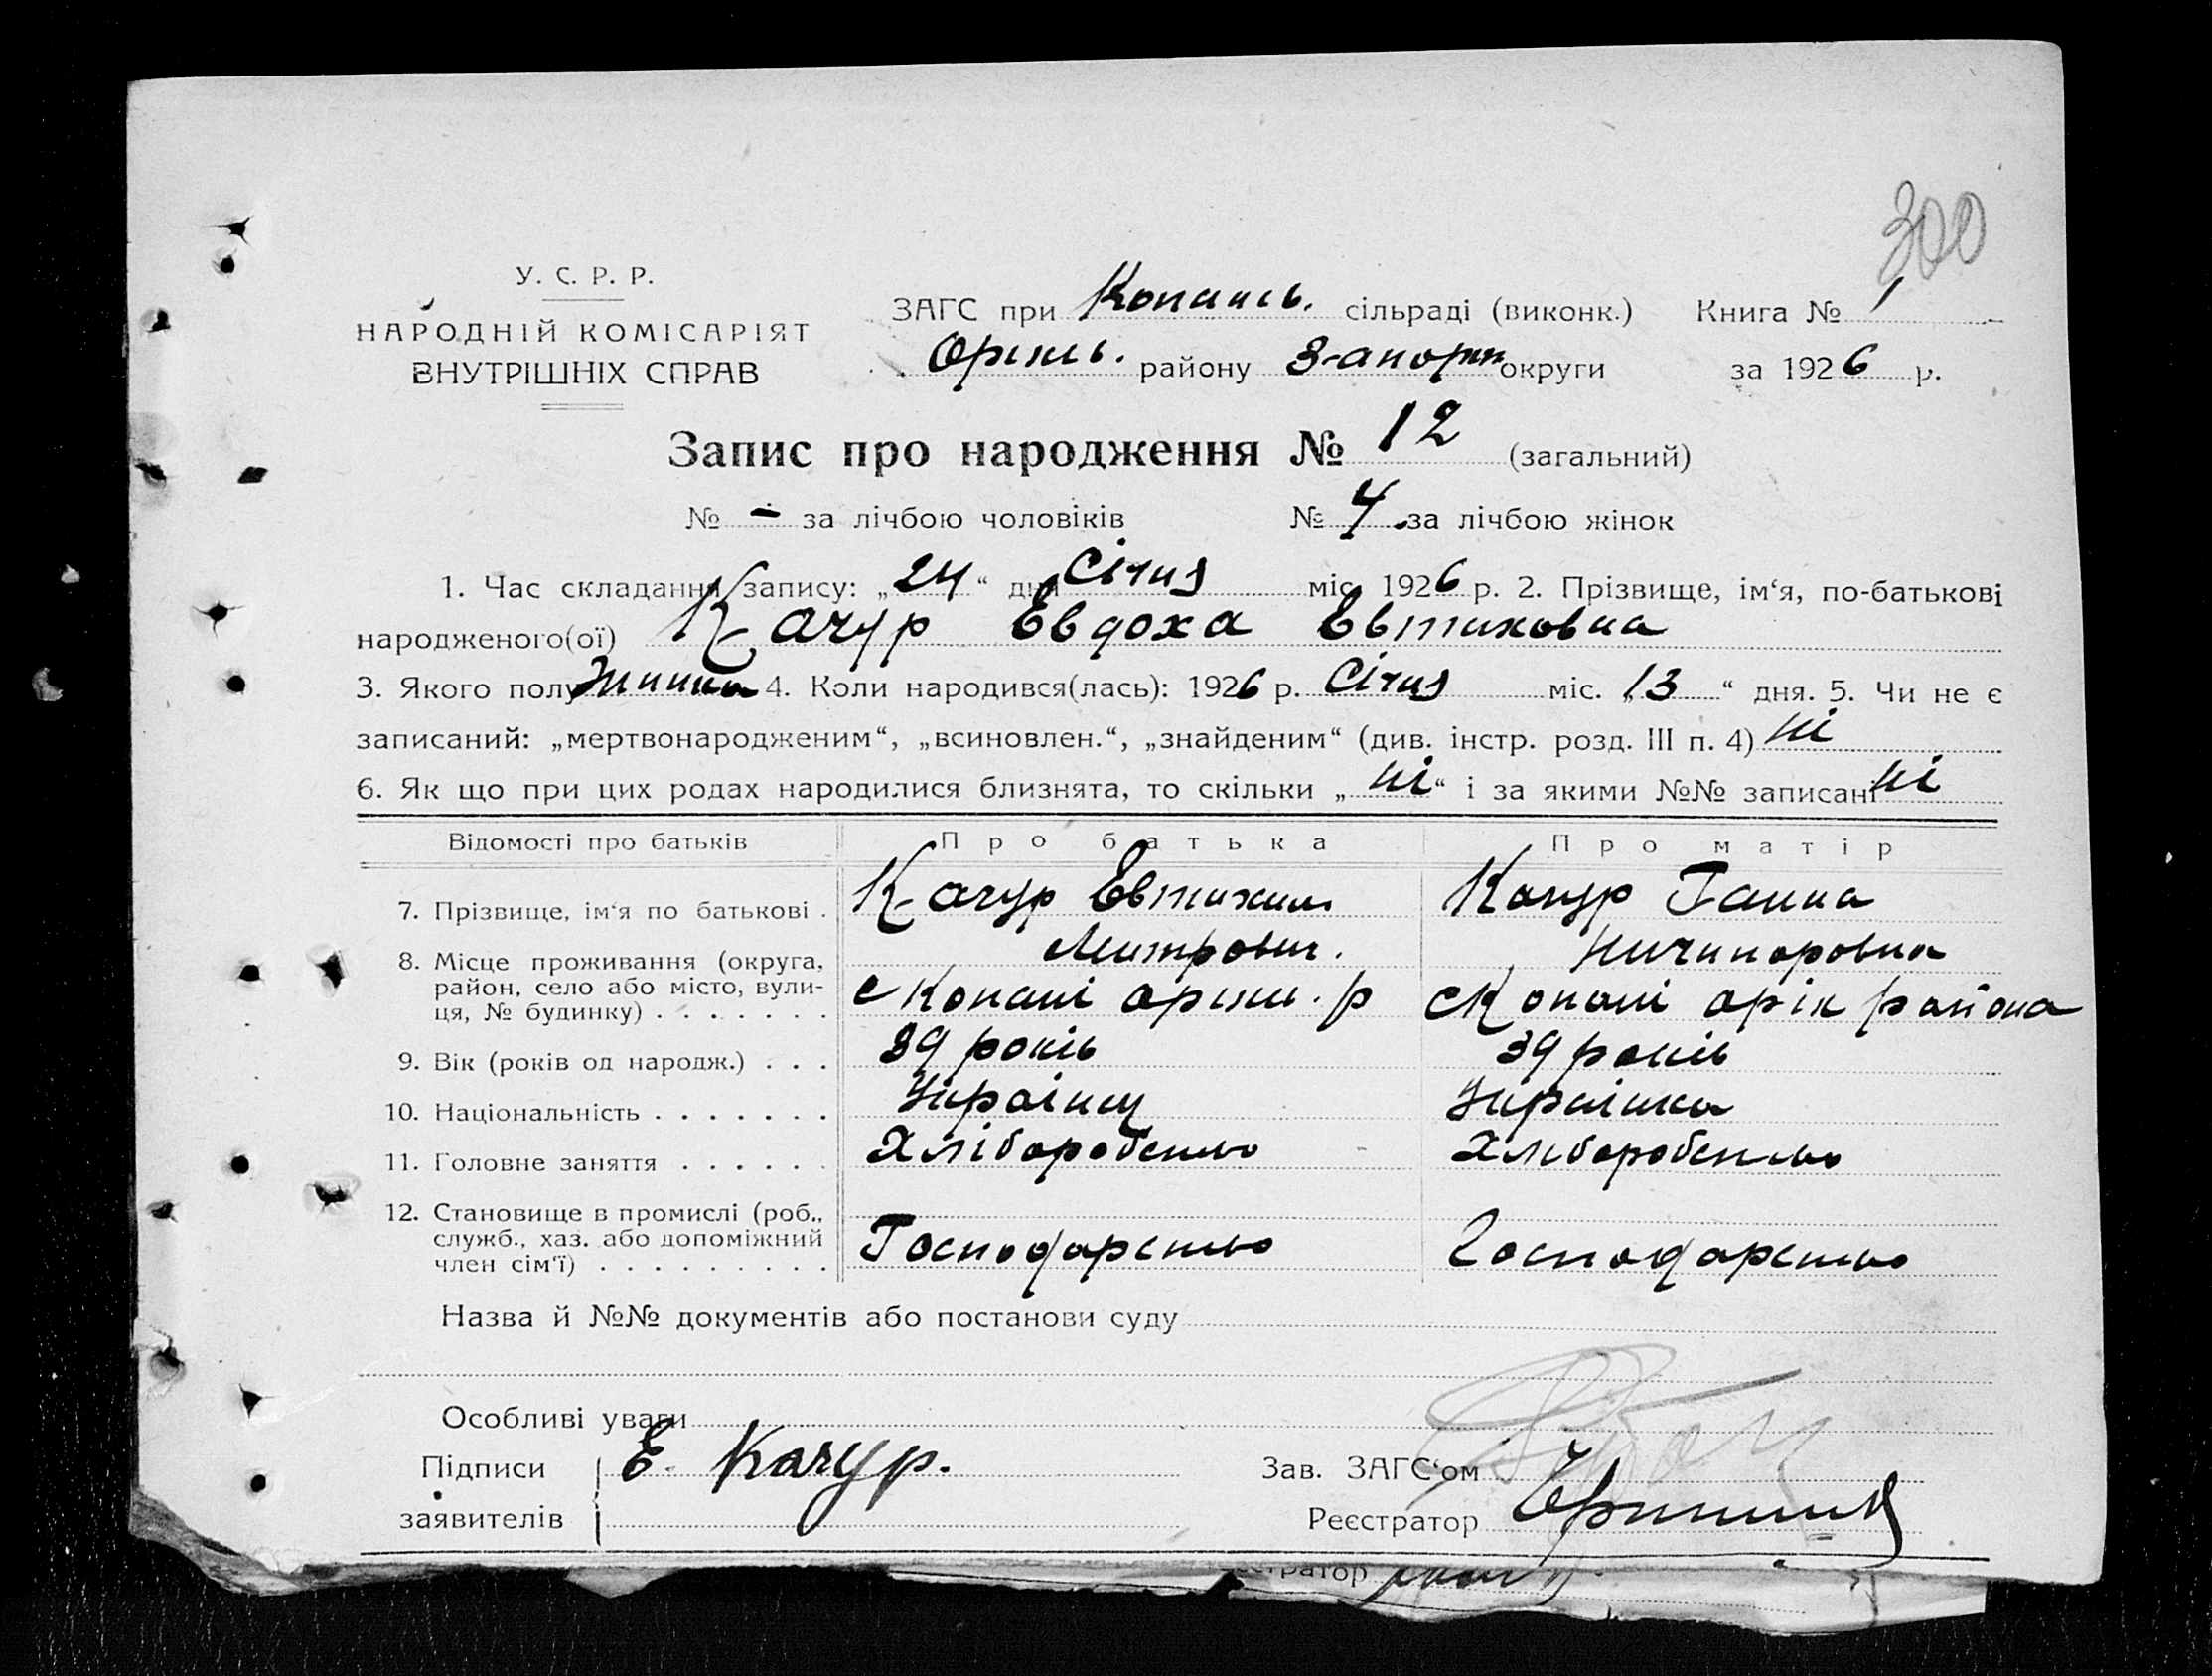 300
У. С. Р. Р.
НАРОДНІЙ КОМІСАРІЯТ
ВНУТРІШНІХ СПРАВ
ЗАГС при Копансь. сільраді (виконк.) Книга № 1
району Запорж округи за 1926 р.
Запис про народження № 12 (загальний)
№ - за лічбою чоловіків № 4 за лічбою жінок
1. Час складання запису: „24“ дня Січня міс. 1926 р. 2. Прізвище, ім‘я, по-батькові
народженого(ої) Качур Евдоха Евтиховна
3. Якого полу Жинка 4. Коли народився(лась): 1926 р. Січня міс. „13“ дня. 5. Чи не є
записаний: „мертвонародженим“, „всиновлен.“, „знайденим“ (див. інстр. розд. III п. 4) ні
6. Як що при цих родах народилися близнята, то скільки „ні“ і за якими №№ записані ні
Відомості про батьків Про батька Про матір
7. Прізвище, ім‘я по батькові . Качур Евтихий Митрович. Качур Ганна Ничипоровна
8. Місце проживання (округа, район, село або місто, вулиця, № будинку) . . . . . . . с Копані оріхи. р с Копані оріх района
9. Вік (років од народж.) . . . 39 років 39 років
10. Національність . . . . . . . Украінц Украінка
11. Головне заняття . . . . . . Хліборобство Хлиборобство
12. Становище в промислі (роб., служб., хаз. або допоміжний член сім‘ї) . . . . . . . . . Господарство Господарство
Назва й №№ документів або постанови суду
Особливі уваги
Підписи заявителів Е. Качур.
Зав. ЗАГС‘ом
Реєстратор